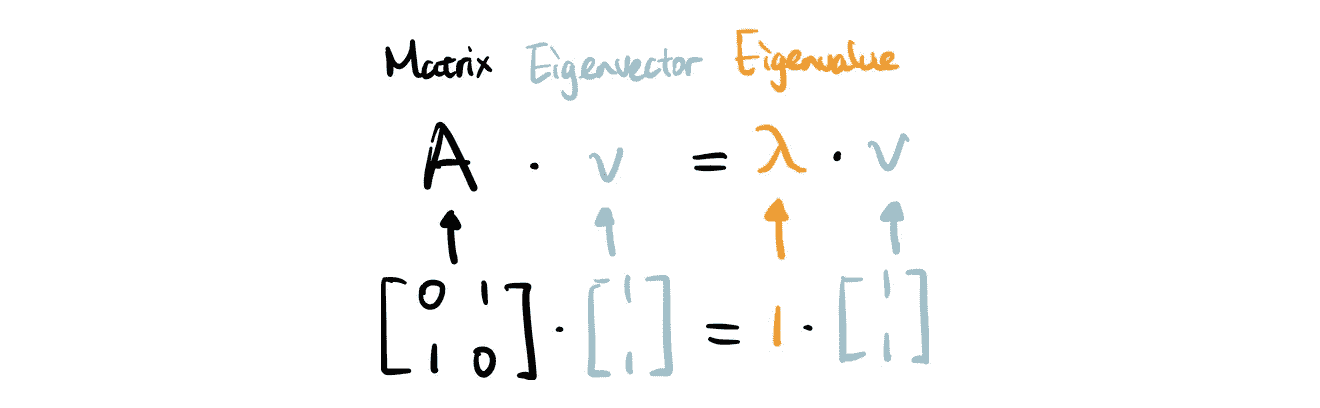 Matrix Eigenvector Eigenvalue
A · v = λ · v
[0 1
1 0] · [1
1] = 1 · [1
1]